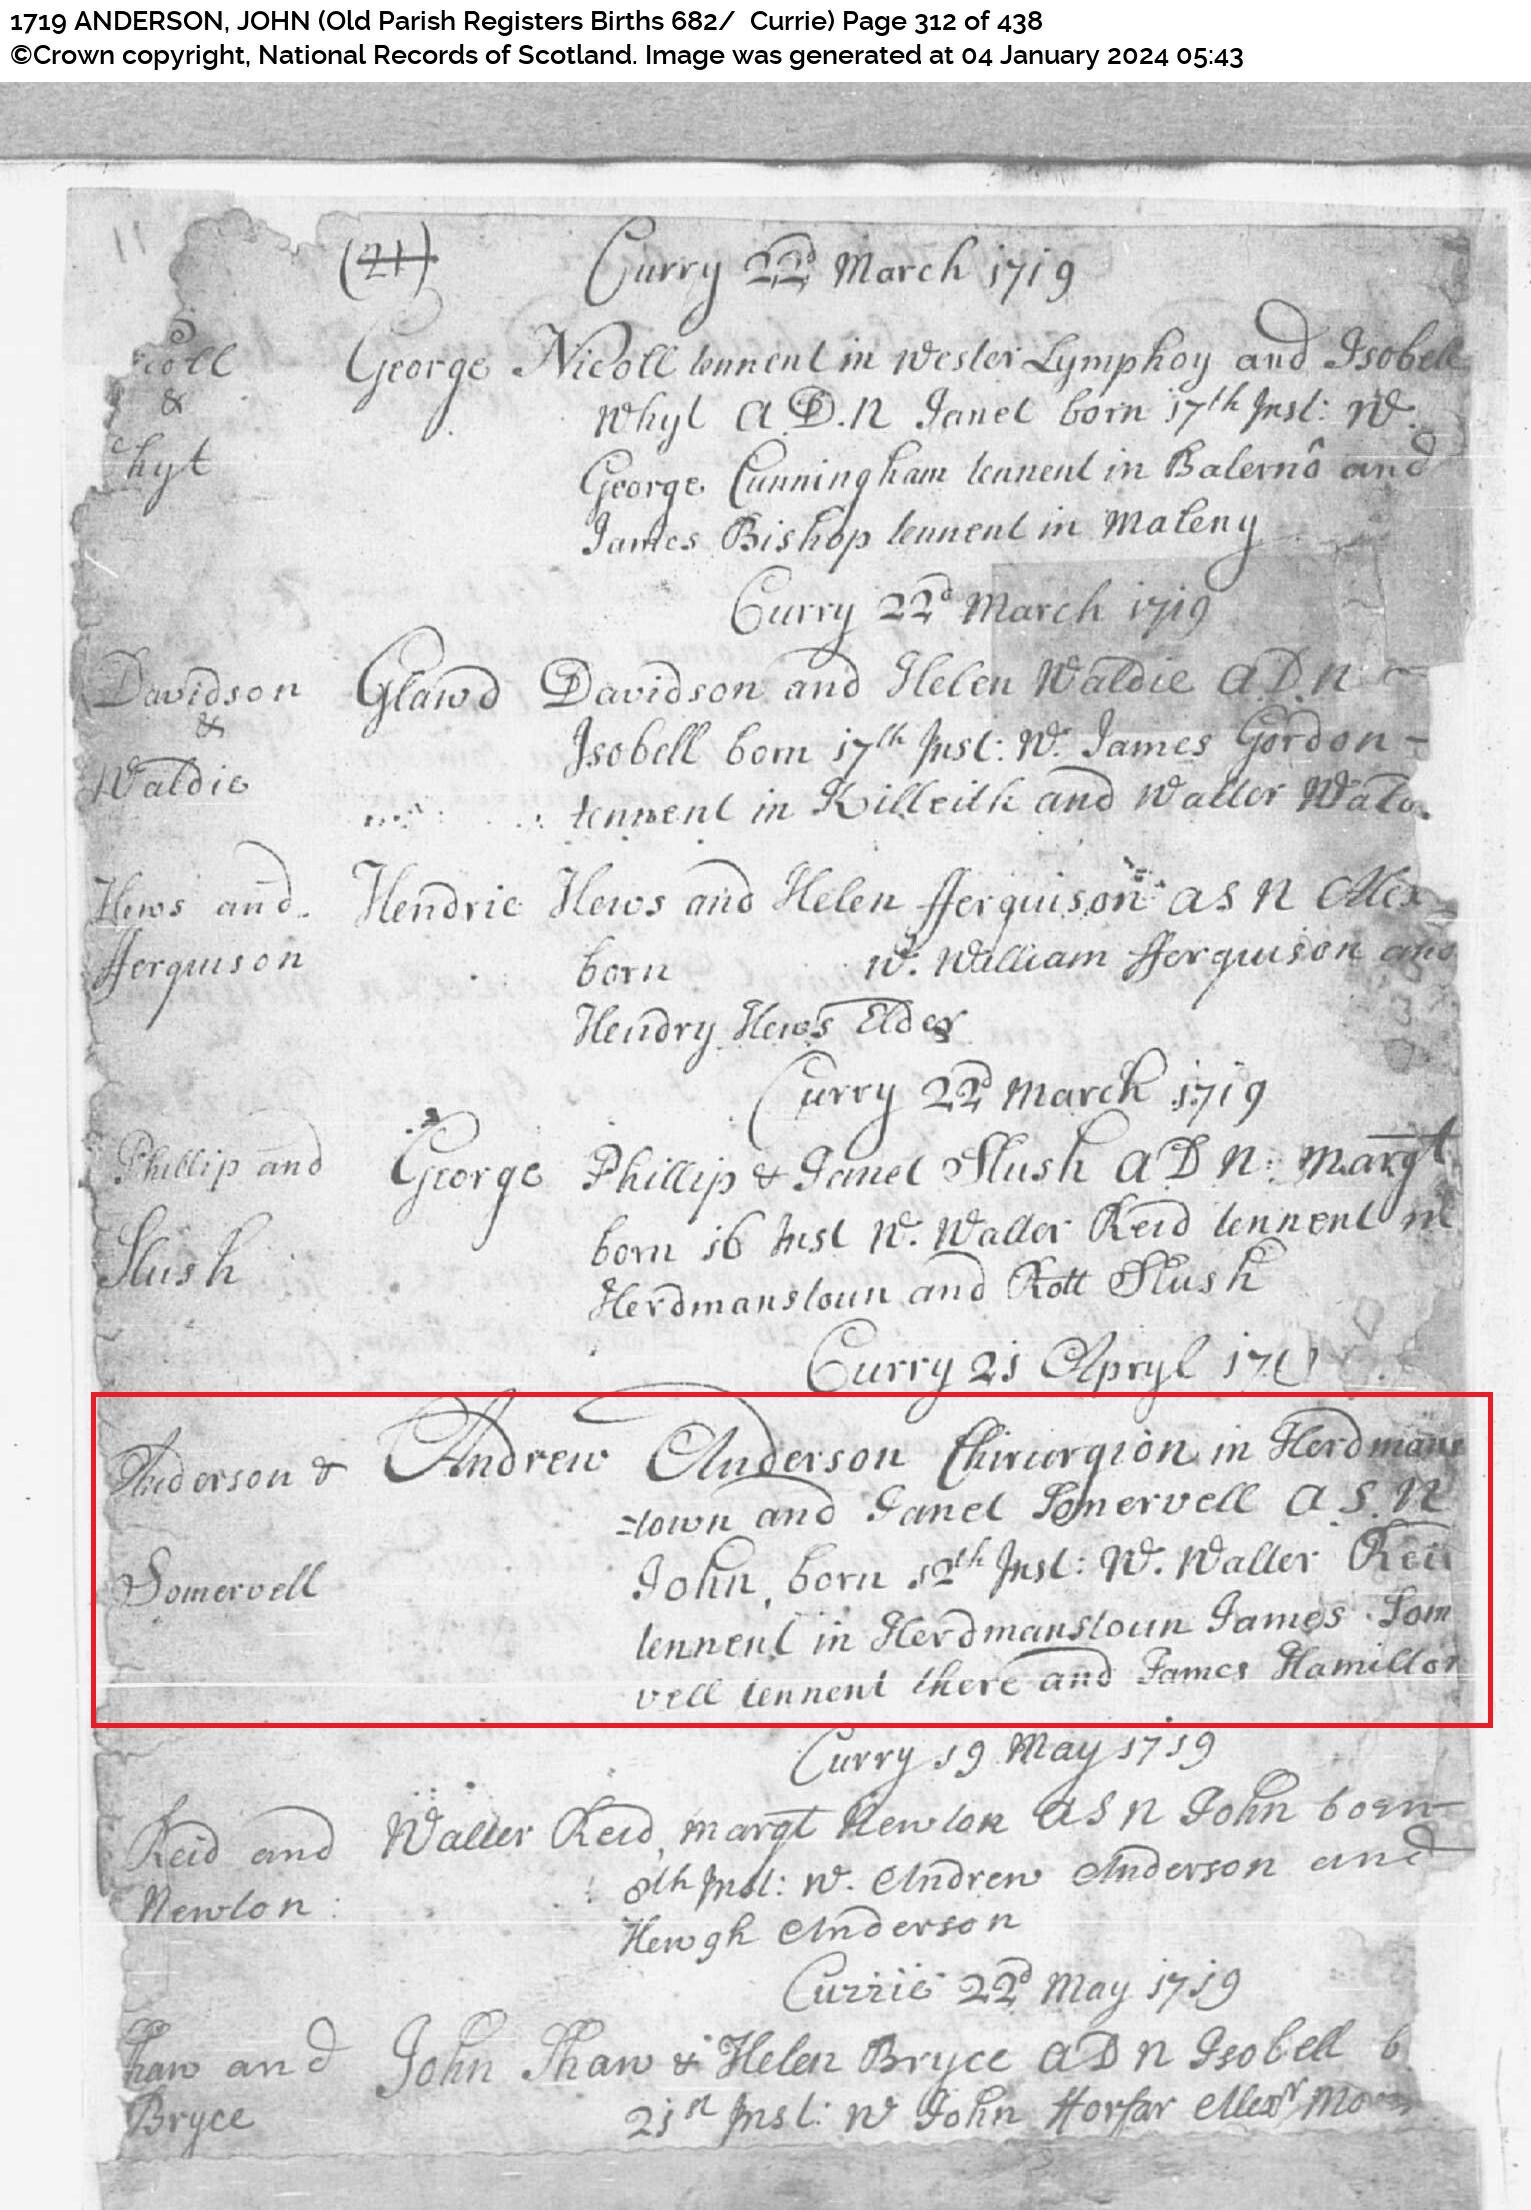 1719 ANDERSON, JOHN (Old Parish Registers Births 682/ Currie) Page 312 of 438
©Crown copyright, National Records of Scotland. Image was generated at 04 January 2024 05:43
(21) Curry 22d March 1719
George Nicoll tennent in Wester Lymphoy and Isobell
&
Whyt A.D.N Janet born 17th Inst: W.
hyt George Cunningham tennent in Balerno and
James Bishop tennent in Maleny
Curry 22d March 1719
Davidson Glawd Davidson and Helen Waldie A D N
&
Isobell born 17th Inst: W. James Gordon -
Waldie tennent in Killeith and Walter
Hews and Hendrie Hews and Helen fferguison A S N Alex
fferguison born W. William fferguison and
Hendry Hews Elder
Curry 22d March 1719
Phillip and George Phillip & Janet Slush A D N: Margt
born 16 Inst W. Walter Reid tennent in
Slush Herdmanstoun and Robt Slush
Curry 21 Apryl
Anderson & Andrew Anderson Chirurgion in Herdmans
=town and Janet Somervell A S. N
Somervell John, born 12th Inst: W. Walter Reid
tennent in Herdmanstoun James Som
vell tennent there and James Hamilton
Curry 19 May 1719
Reid and Walter Reid, Margt Newton A S N John born
8th Inst: W. Andrew Anderson and
Newton: Hewgh Anderson
Currie 22d May 1719
haw and John Shaw & Helen Bryce A D N Isobell b
Bryce 21st Inst: W John Alexr